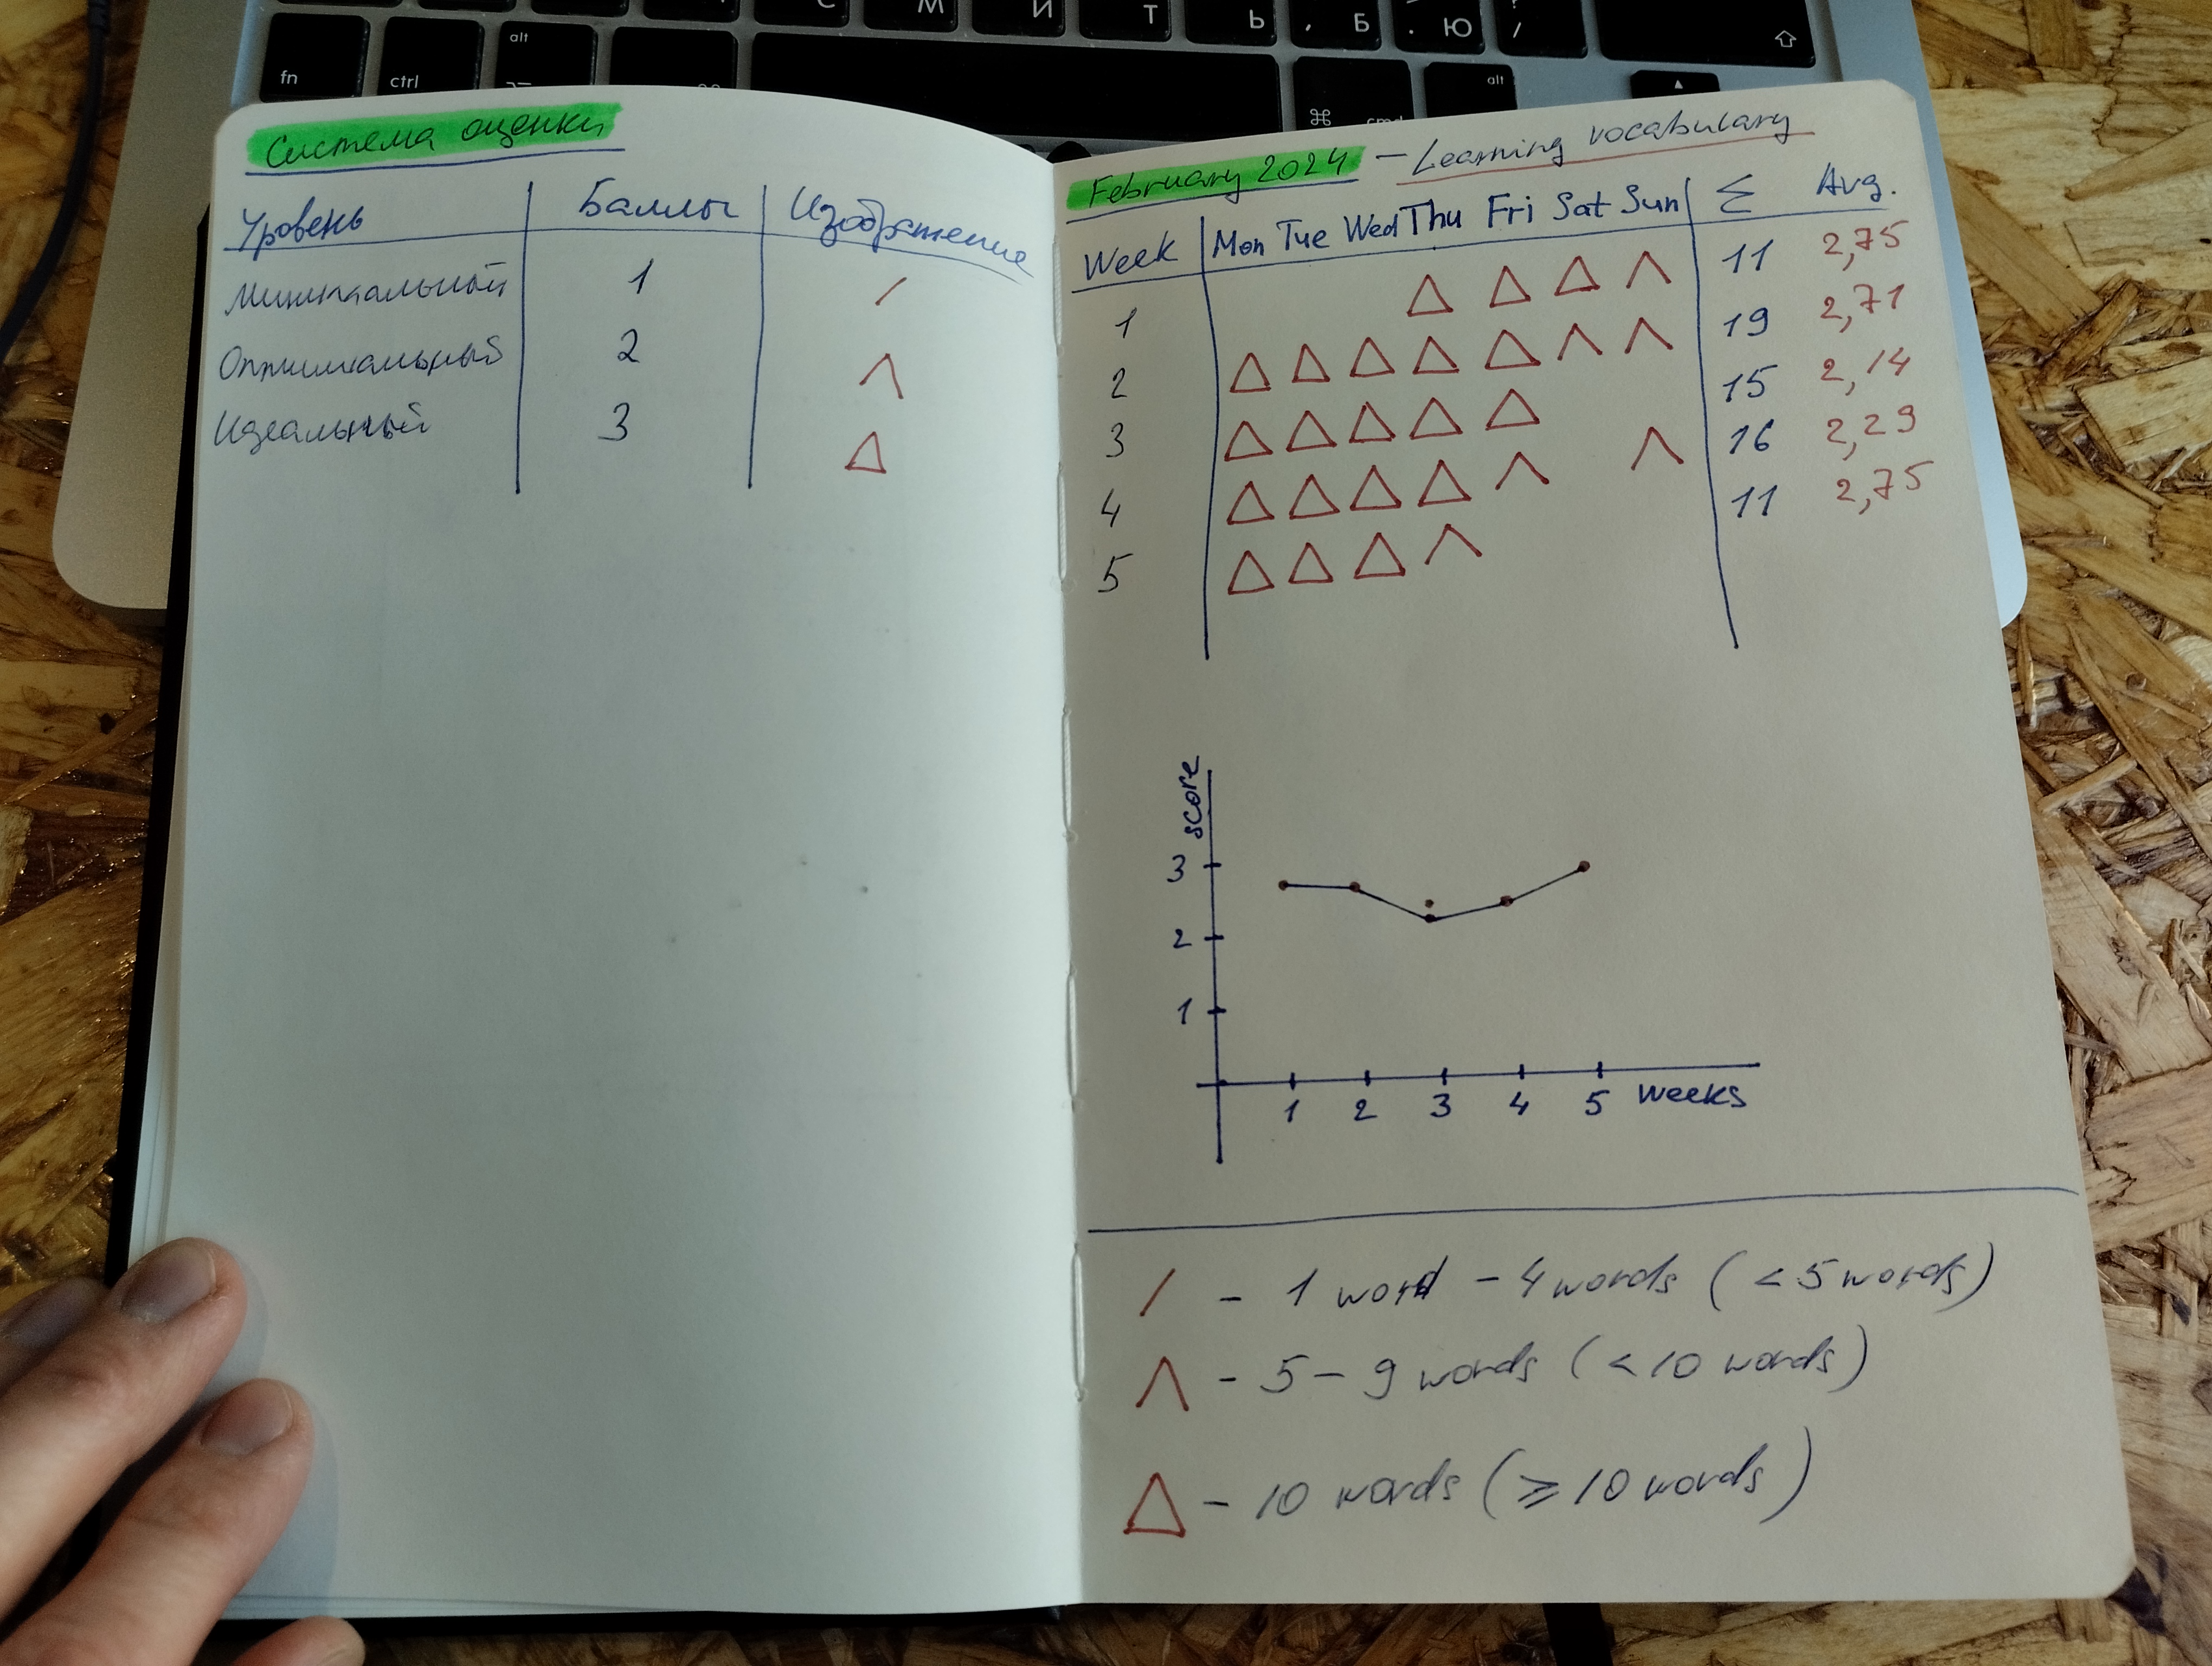 С М И Т Ь , Б . Ю /
fn ctrl alt ⌘ cmd alt
Система оценки
Уровень Баллы Изображение
Минимальный 1 /
Оптимальный 2 Λ
Идеальный 3 Δ
February 2024 – Learning vocabulary
Week Mon Tue Wed Thu Fri Sat Sun Σ Avg.
1 Δ Δ Δ Λ 11 2,75
2 Δ Δ Δ Δ Δ Λ Λ 19 2,71
3 Δ Δ Δ Δ Δ 15 2,14
4 Δ Δ Δ Δ Λ Λ 16 2,29
5 Δ Δ Δ Λ 11 2,75
score
3
2
1
1 2 3 4 5 weeks
/ – 1 word – 4 words (< 5 words)
Λ – 5 – 9 words (< 10 words)
Δ – 10 words (⩾ 10 words)